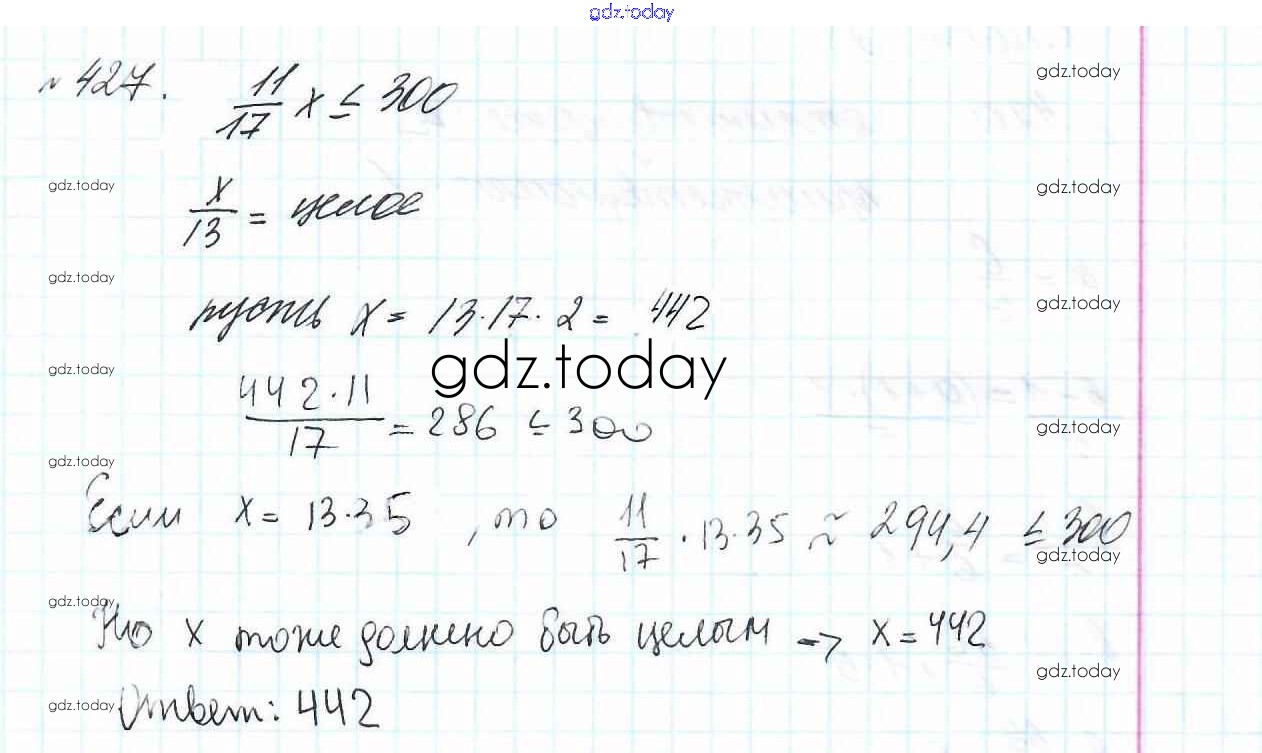 gdz.today
№ 427. 11/17 x ≤ 300
gdz.today
gdz.today
gdz.today
x/13 = целое
gdz.today
gdz.today
пусть x = 13·17·2 = 442
gdz.today
gdz.today
442·11/17 = 286 ≤ 300
gdz.today
gdz.today
Если x = 13·35, то 11/17 · 13·35 ≈ 294,4 ≤ 300
gdz.today
gdz.today
Но x тоже должно быть целым → x = 442
gdz.today
gdz.today
Ответ: 442